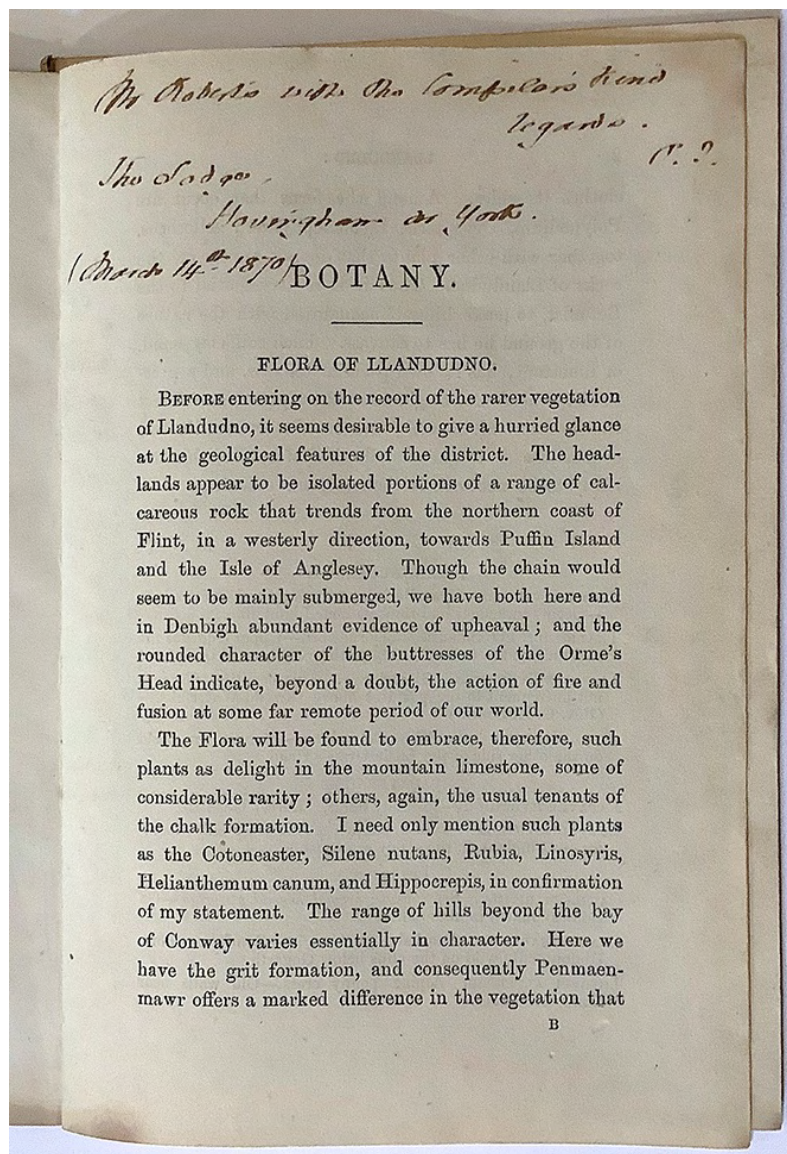 Mr Roberts with the Compiler's kind
regards.
The Lodge,
Hovingham nr York.
(March 14th 1870)
BOTANY.
FLORA OF LLANDUDNO.
BEFORE entering on the record of the rarer vegetation
of Llandudno, it seems desirable to give a hurried glance
at the geological features of the district. The head-
lands appear to be isolated portions of a range of cal-
careous rock that trends from the northern coast of
Flint, in a westerly direction, towards Puffin Island
and the Isle of Anglesey. Though the chain would
seem to be mainly submerged, we have both here and
in Denbigh abundant evidence of upheaval; and the
rounded character of the buttresses of the Orme's
Head indicate, beyond a doubt, the action of fire and
fusion at some far remote period of our world.
The Flora will be found to embrace, therefore, such
plants as delight in the mountain limestone, some of
considerable rarity; others, again, the usual tenants of
the chalk formation. I need only mention such plants
as the Cotoneaster, Silene nutans, Rubia, Linosyris,
Helianthemum canum, and Hippocrepis, in confirmation
of my statement. The range of hills beyond the bay
of Conway varies essentially in character. Here we
have the grit formation, and consequently Penmaen-
mawr offers a marked difference in the vegetation that
B